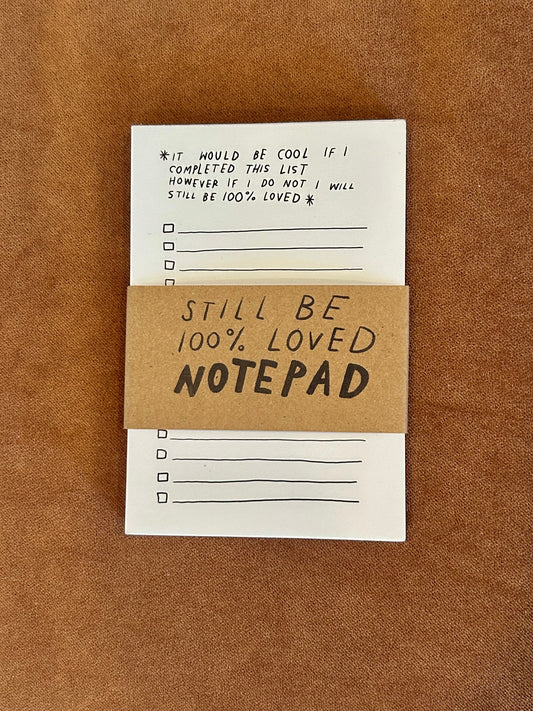 *IT WOULD BE COOL IF I
COMPLETED THIS LIST
HOWEVER IF I DO NOT I WILL
STILL BE 100% LOVED*
STILL BE
100% LOVED
NOTEPAD